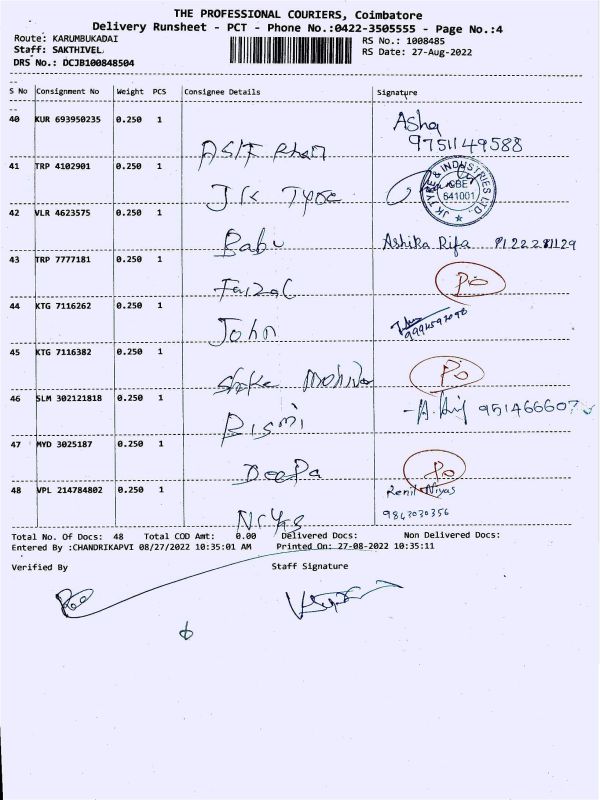 THE PROFESSIONAL COURIERS, Coimbatore
Delivery Runsheet - PCT - Phone No.:0422-3505555 - Page No.:4
Route: KARUMBUKADAI
RS No.: 1008485
Staff: SAKTHIVEL
RS Date: 27-Aug-2022
DRS No.: DCJB100848504
S No Consignment No Weight PCS Consignee Details Signature
40 KUR 693950235 0.250 1
Asha
9751149588
ASIF Khan
41 TRP 4102901 0.250 1
JK TYRE & INDUSTRIES LTD.
CBE
641001
JK Tyre
42 VLR 4623575 0.250 1
Babu
Ashika Rifa
43 TRP 7777181 0.250 1
Po
Faizal
44 KTG 7116262 0.250 1
John
45 KTG 7116382 0.250 1
Po
46 SLM 302121818 0.250 1
951466607
Bismi
47 MYD 3025187 0.250 1
Po
Deepa
48 VPL 214784802 0.250 1
Renil Niyas
9843030356
Niyas
Total No. Of Docs: 48 Total COD Amt: 0.00 Delivered Docs: Non Delivered Docs:
Entered By :CHANDRIKAPVI 08/27/2022 10:35:01 AM Printed On: 27-08-2022 10:35:11
Verified By Staff Signature